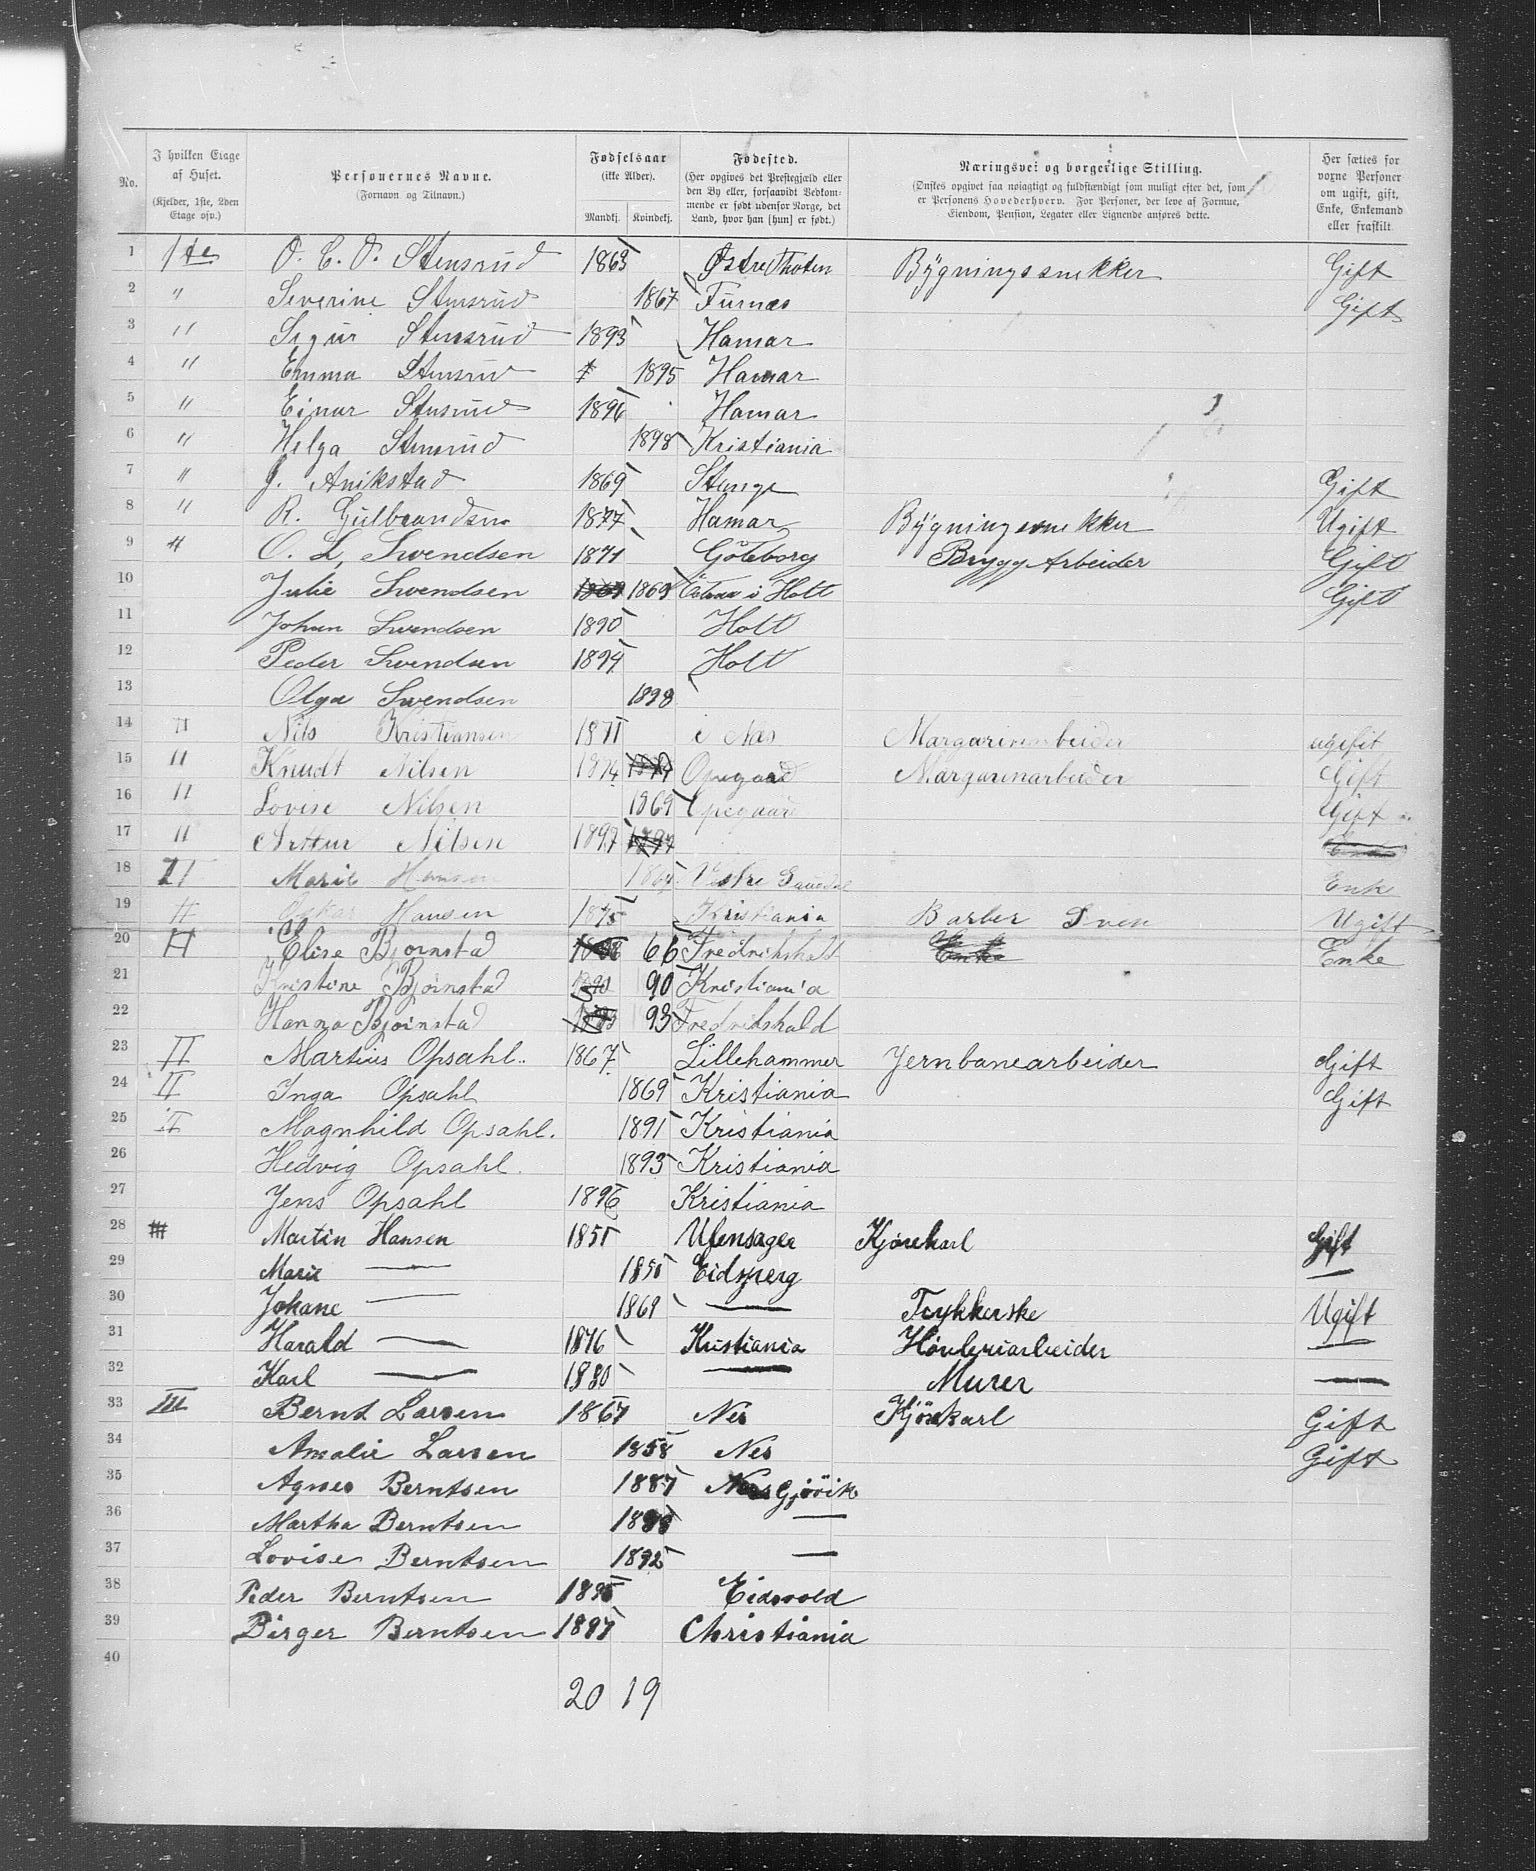 No. | I hvilken Etage af Huset. (Kjelder, 1ste, 2den Etage osv.) | Personernes Navne. (Fornavn og Tilnavn.) | Fødselsaar (ikke Alder). Mandkj. Kvindekj. | Fødested. (Her opgives det Prestegjæld eller den By eller, forsaavidt Vedkommende er født udenfor Norge, det Land, hvor han [hun] er født.) | Næringsvei og borgerlige Stilling. (Ønskes opgivet saa nøiagtigt og fuldstændigt som muligt efter det, som er Personens Hovederhverv. For Personer, der leve af Formue, Eiendom, Pension, Legater eller Lignende anføres dette. | Her sættes for voxne Personer om ugift, gift, Enke, Enkemand eller fraskilt.
1 1te O. C. O. Stensrud 1863 Østre Thoten Bygningssnekker Gift
2 " Severine Stensrud 1867 Furnæs Gift
3 " Sigur Stensrud 1893 Hamar
4 " Emma Stensrud 1895 Hamar
5 " Einar Stensrud 1896 Hamar
6 " Helga Stensrud 1898 Kristiania
7 " J. Anikstad 1869 Stange Gift
8 " R. Gulbrandsen 1877 Hamar Bygningssnekker Ugift
9 " O. L. Swendsen 1871 Göteborg Brygg Arbeider Gift
10 Julie Swendsen 1869 i Holt Gift
11 Johan Swendsen 1890 Holt
12 Peder Swendsen 1894 Holt
13 Olga Swendsen 1898
14 " Nils Kristiansen 1871 i Næs Margarinarbeider ugift
15 " Knudt Nilsen 1874 Opegaard Margarinarbeider Gift
16 " Lovise Nilsen 1869 Opegaard Gift
17 " Arttur Nilsen 1897
18 II Marie Hansen Vestre Enke
19 II Oskar Hansen 1875 Kristiania Barber Sven Ugift
20 II Elise Bjørnstad 66 Fredrikshalt Enke
21 Kristine Bjørnstad 90 Kristiania
22 Hanna Bjørnstad 93 Fredrikshald
23 II Martius Opsahl. 1867 Lillehammer Jernbanearbeider Gift
24 II Inga Opsahl 1869 Kristiania Gift
25 II Magnhild Opsahl. 1891 Kristiania
26 Hedvig Opsahl. 1893 Kristiania
27 Jens Opsahl 1896 Kristiania
28 III Martin Hansen 1851 Ulensager Kjørekarl Gift
29 Marie — 1850 Eidsberg —
30 Johane — 1869 — Trykkerske Ugift
31 Harald — 1876 Kristiania Høvleriarbeider —
32 Karl — 1880 — Murer —
33 III Bernt Larsen 1867 Nes Kjörekarl Gift
34 Amalie Larsen 1858 Nes Gift
35 Agnes Berntsen 1887 Gjövik
36 Martha Berntsen —
37 Lovise Berntsen 1892 —
38 Peder Berntsen 1895 Eidsvold
39 Birger Berntsen 1897 Christiania
40
20 19